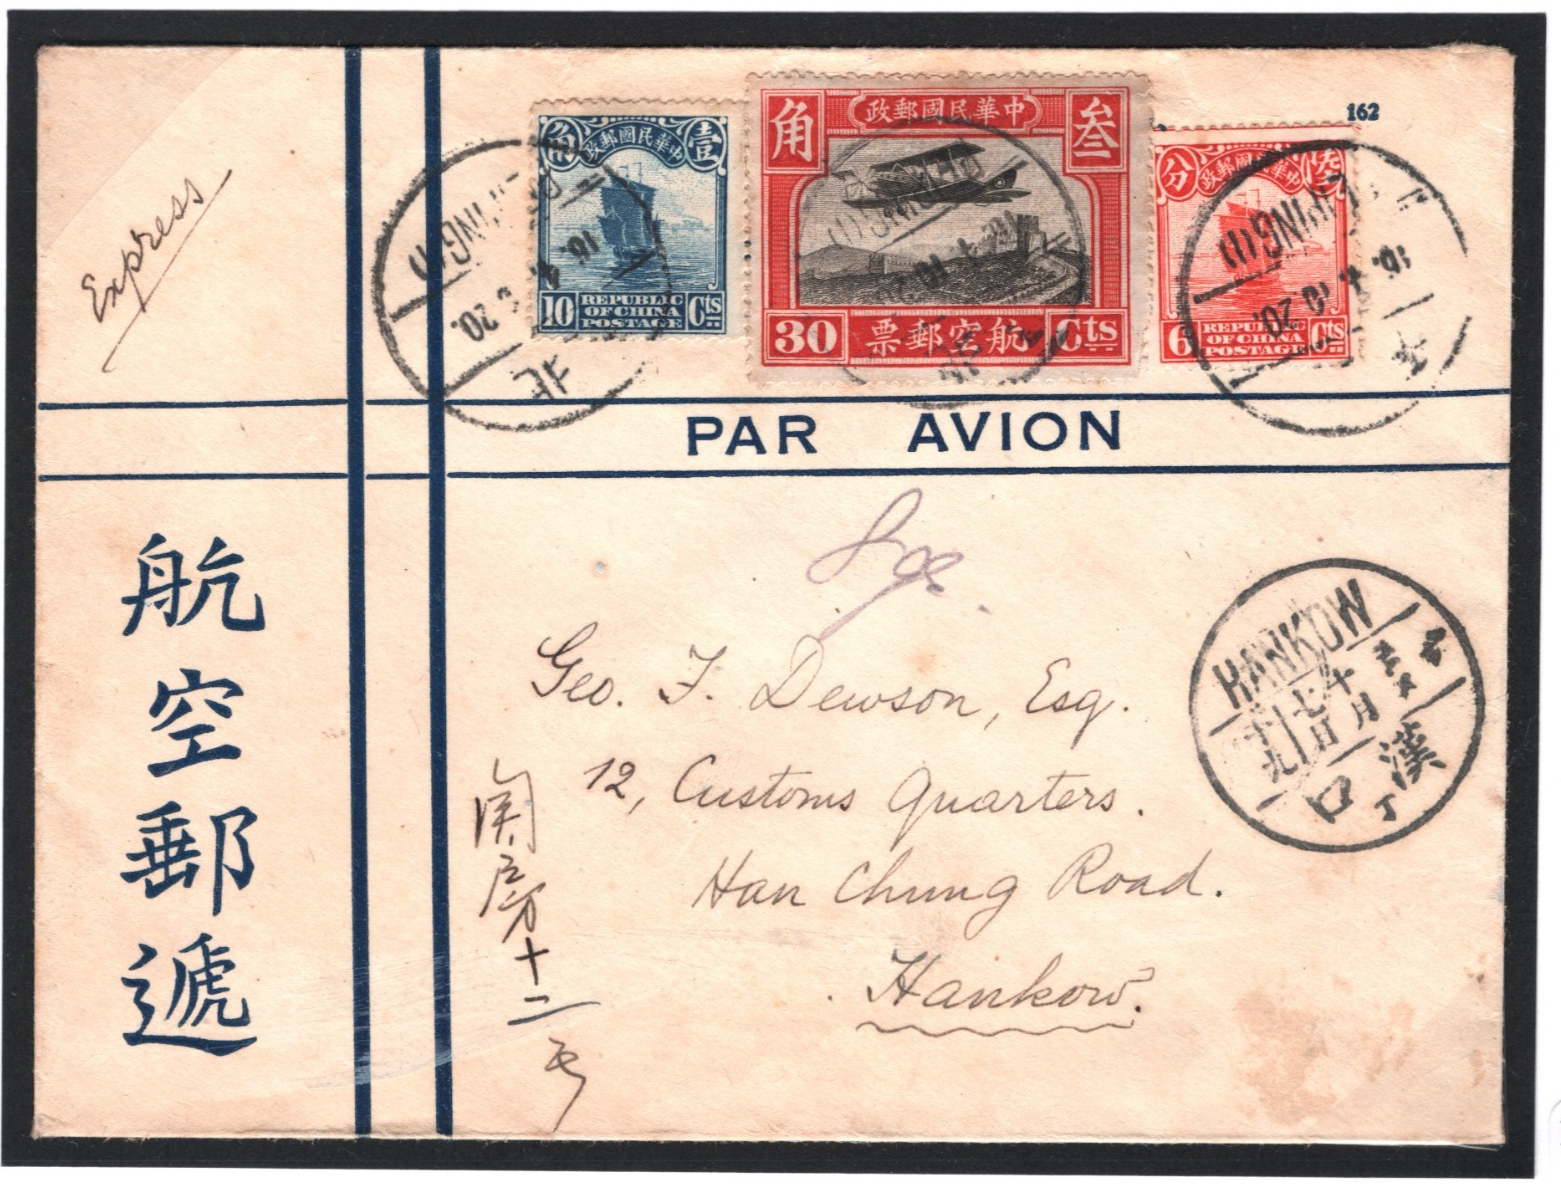 162
Express
角 政郵國民華中 叁
30 票郵空航 Cts
角 政郵國民華中 壹
10 REPUBLIC OF CHINA POSTAGE Cts
分 政郵國民華中 陸
6 REPUBLIC OF CHINA POSTAGE Cts
PAR AVION
航空郵遞
Geo. F. Dewson, Esq.
12, Customs Quarters.
Han Chung Road.
Hankow.
十二号
HANKOW
十月
漢口
丁